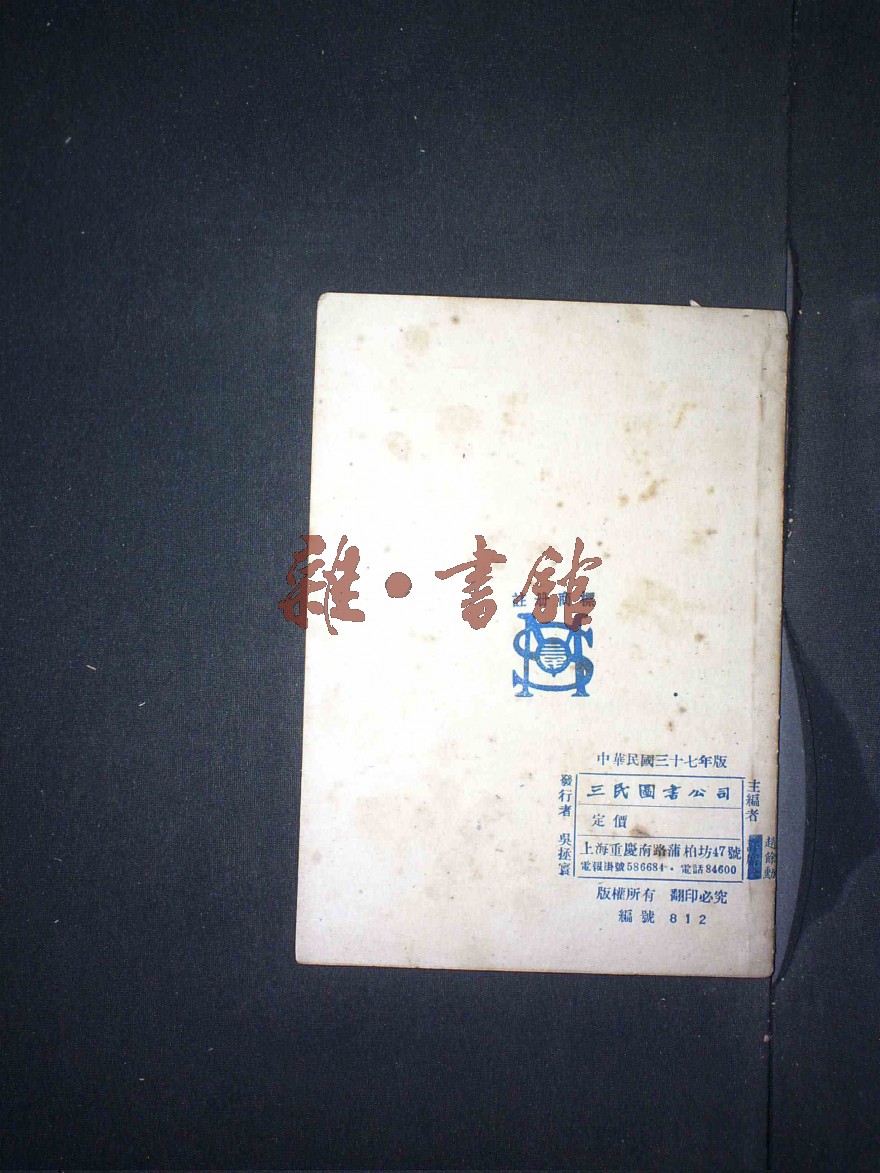 雜·書館
註冊商標
中華民國三十七年版
主編者
趙餘勳
三民圖書公司
定價
上海重慶南路蒲柏坊47號
電報掛號586684·電話84600
發行者 吳拯寰
版權所有 翻印必究
編號 812